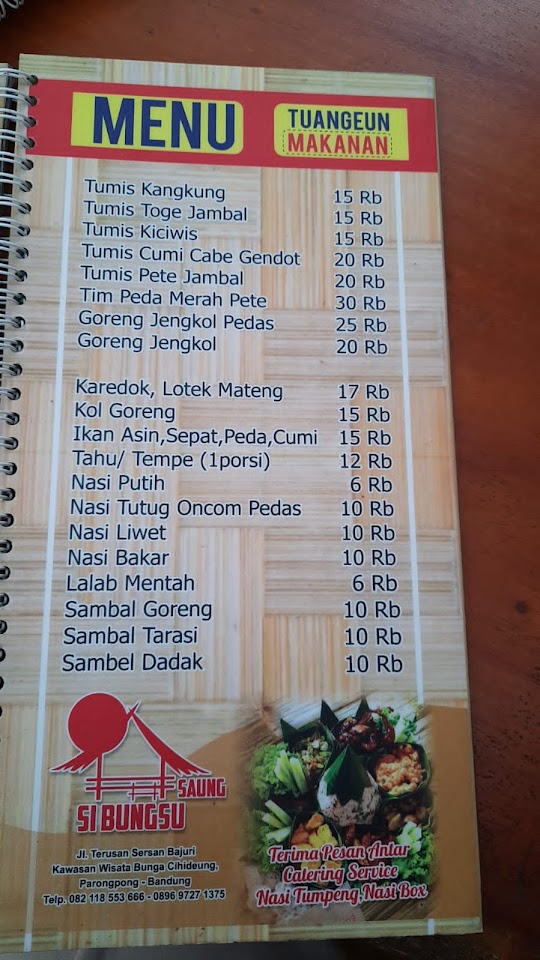 MENU
TUANGEUN
MAKANAN
Tumis Kangkung 15 Rb
Tumis Toge Jambal 15 Rb
Tumis Kiciwis 15 Rb
Tumis Cumi Cabe Gendot 20 Rb
Tumis Pete Jambal 20 Rb
Tim Peda Merah Pete 30 Rb
Goreng Jengkol Pedas 25 Rb
Goreng Jengkol 20 Rb
Karedok, Lotek Mateng 17 Rb
Kol Goreng 15 Rb
Ikan Asin,Sepat,Peda,Cumi 15 Rb
Tahu/ Tempe (1porsi) 12 Rb
Nasi Putih 6 Rb
Nasi Tutug Oncom Pedas 10 Rb
Nasi Liwet 10 Rb
Nasi Bakar 10 Rb
Lalab Mentah 6 Rb
Sambal Goreng 10 Rb
Sambal Tarasi 10 Rb
Sambel Dadak 10 Rb
SAUNG
SI BUNGSU
Jl. Terusan Sersan Bajuri
Kawasan Wisata Bunga Cihideung,
Parongpong - Bandung
Telp. 082 118 553 666 - 0896 9727 1375
Terima Pesan Antar
Catering Service
Nasi Tumpeng,Nasi Box